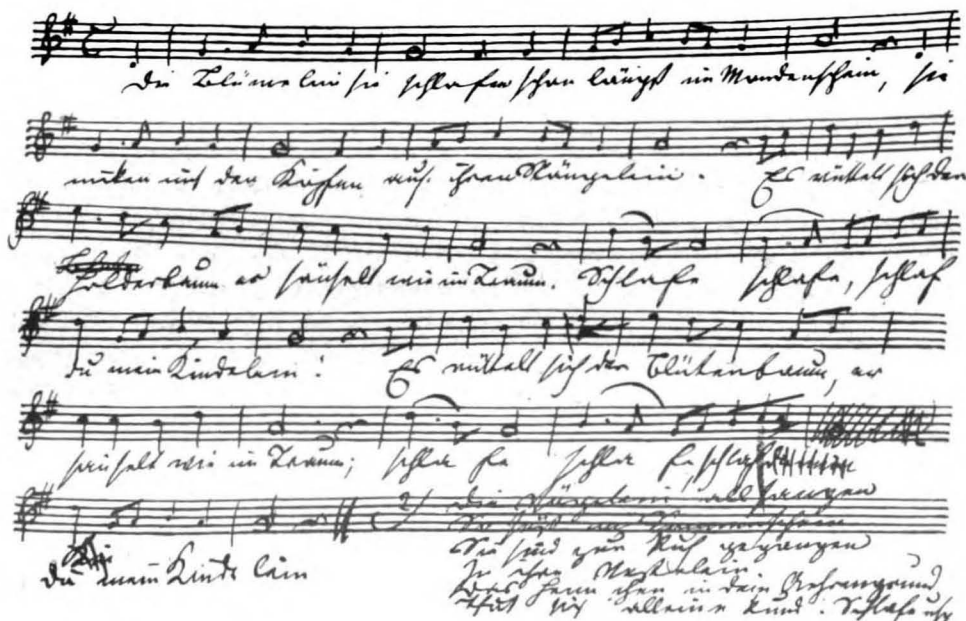 Die Blümelein sie schlafen schon längst im Mondenschein, sie
niken mit den Köpfen auf ihren Stängelein. Es rüttelt sich der
Holderbaum er säuselt wie im Traum. Schlafe schlafe, schlaf
du mein Kindelein! Es rüttelt sich der Blütenbaum, er
säuselt wie im Traum; schla fe schla fe, schlaf
du mein Kinde lein
2) die Vögelein all sangen
So süß im Sonnenschein
Sie sind zur Ruh gegangen
In ihre Nestelein
das Heim chen in dem Aehrengrund
Thut sich alleine kund. Schlafe